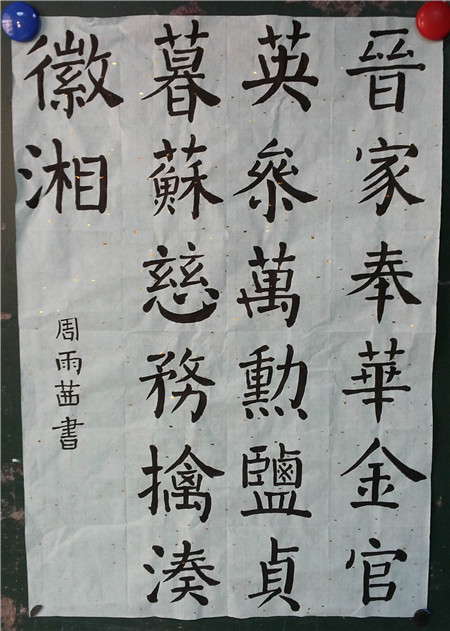 晉家奉華金官
英參萬勳鹽貞
暮蘇慈務擒湊
徽湘
周雨茜書